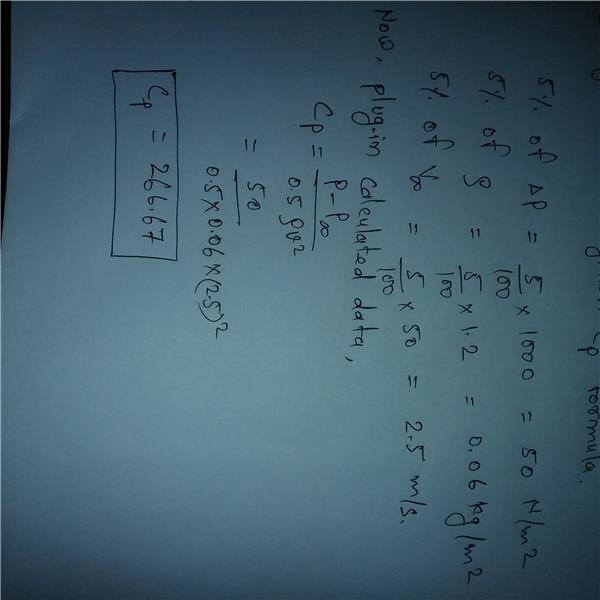 Cp formula.
5% of ΔP = 5/100 × 1000 = 50 N/m2
5% of ρ = 5/100 × 1.2 = 0.06 kg/m2
5% of V∞ = 5/100 × 50 = 2.5 m/s.
Now, plug-in calculated data,
Cp = P - P∞ / 0.5 ρv²
= 50 / 0.5 × 0.06 × (2.5)²
Cp = 266.67